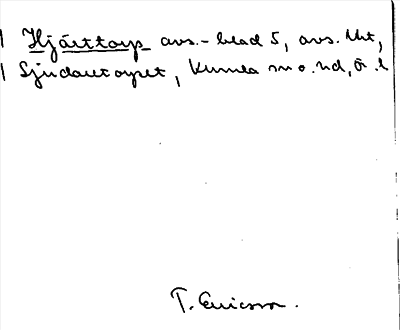 Hjärttorp avs.- blad 5, avs. Utt,
Sjudaretorpet, Kumla sn o. hd, Ö. l
T. Ericsson.